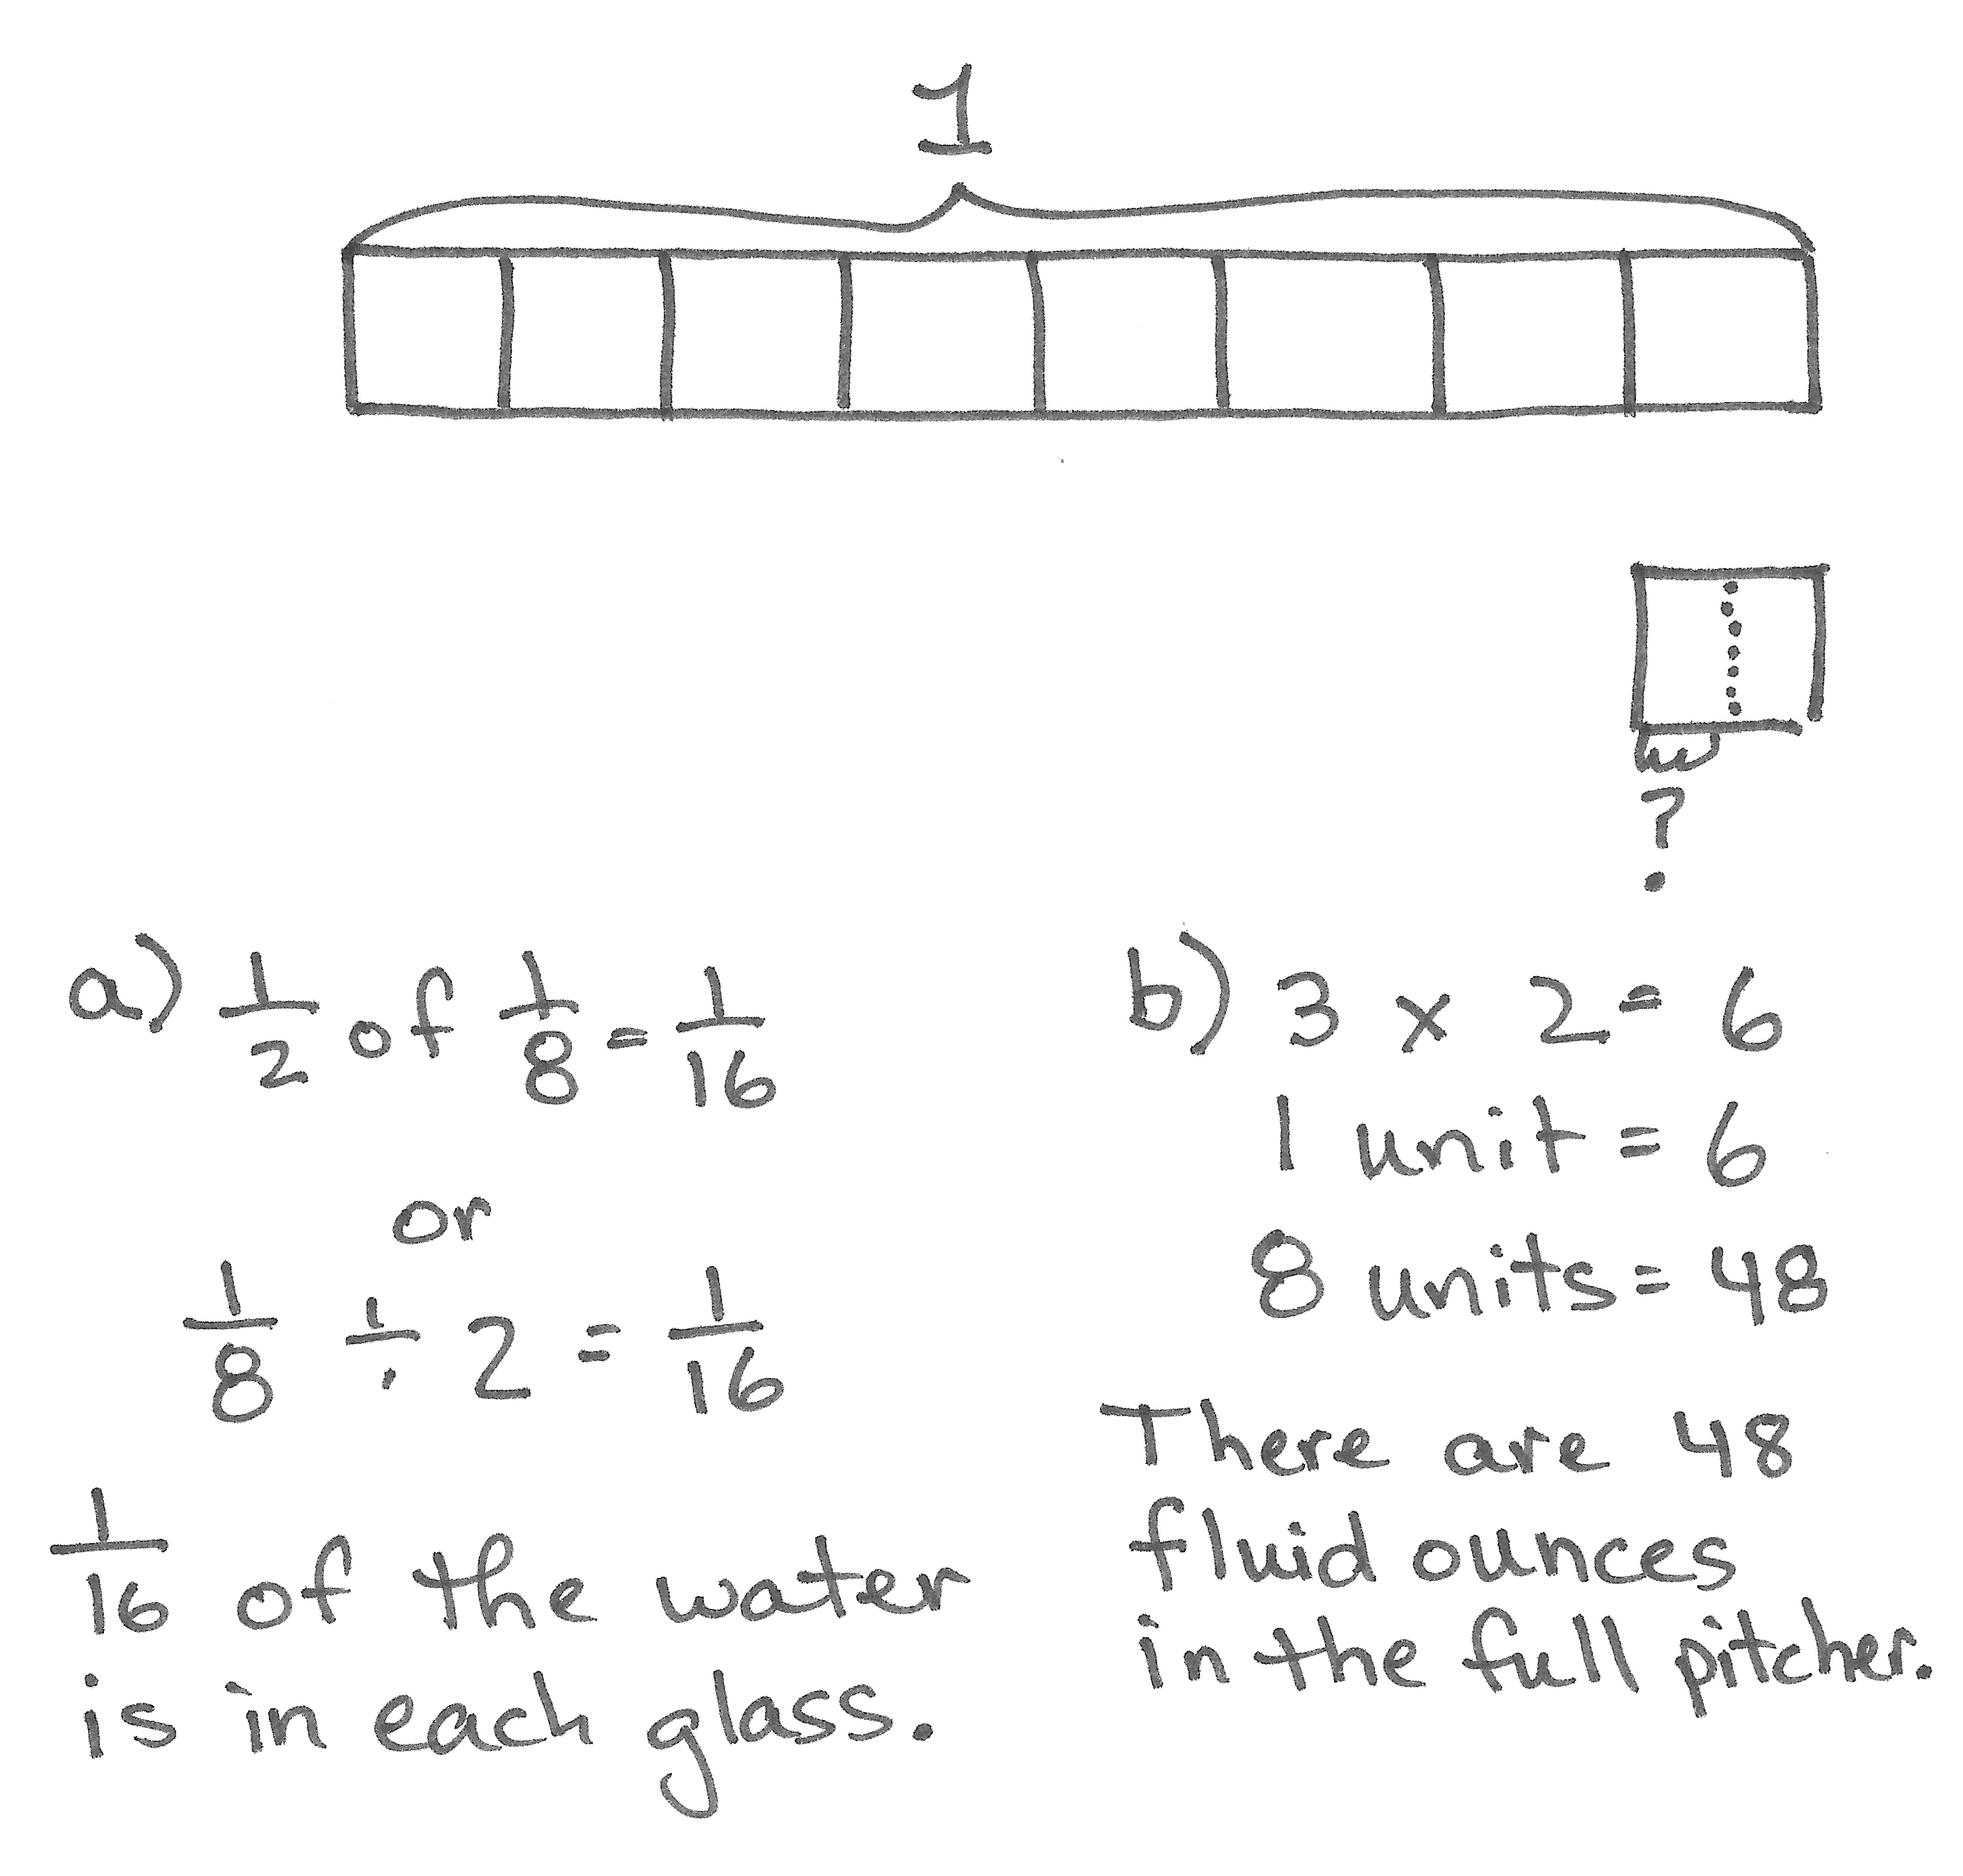 1
?
a) 1/2 of 1/8 = 1/16
or
1/8 ÷ 2 = 1/16
1/16 of the water
is in each glass.
b) 3 x 2 = 6
1 unit = 6
8 units = 48
There are 48
fluid ounces
in the full pitcher.